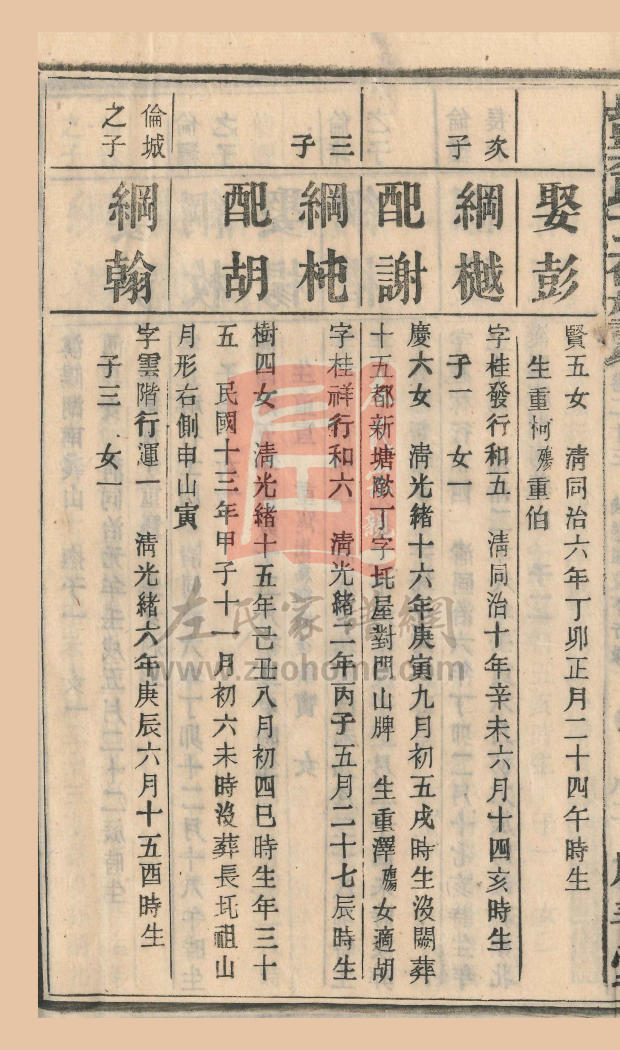 娶彭
賢五女　清同治六年丁卯正月二十四午時生
生重柯殤重伯
次子
綱樾
字桂發行和五　清同治十年辛未六月十四亥時生
子一　女一
配謝
慶六女　清光緒十六年庚寅九月初五戌時生沒闕葬
十五都新塘歐丁字坵屋對門山牌　生重澤殤女適胡
三子
綱杶
字桂祥行和六　清光緒二年丙子五月二十七辰時生
配胡
樹四女　清光緒十五年己丑八月初四巳時生年三十
五　民國十三年甲子十一月初六未時沒葬長坵祖山
月形右側申山寅
倫城之子
綱翰
字雲階行運一　清光緒六年庚辰六月十五酉時生
子三　女一
左氏家譜網
www.zuohome.com